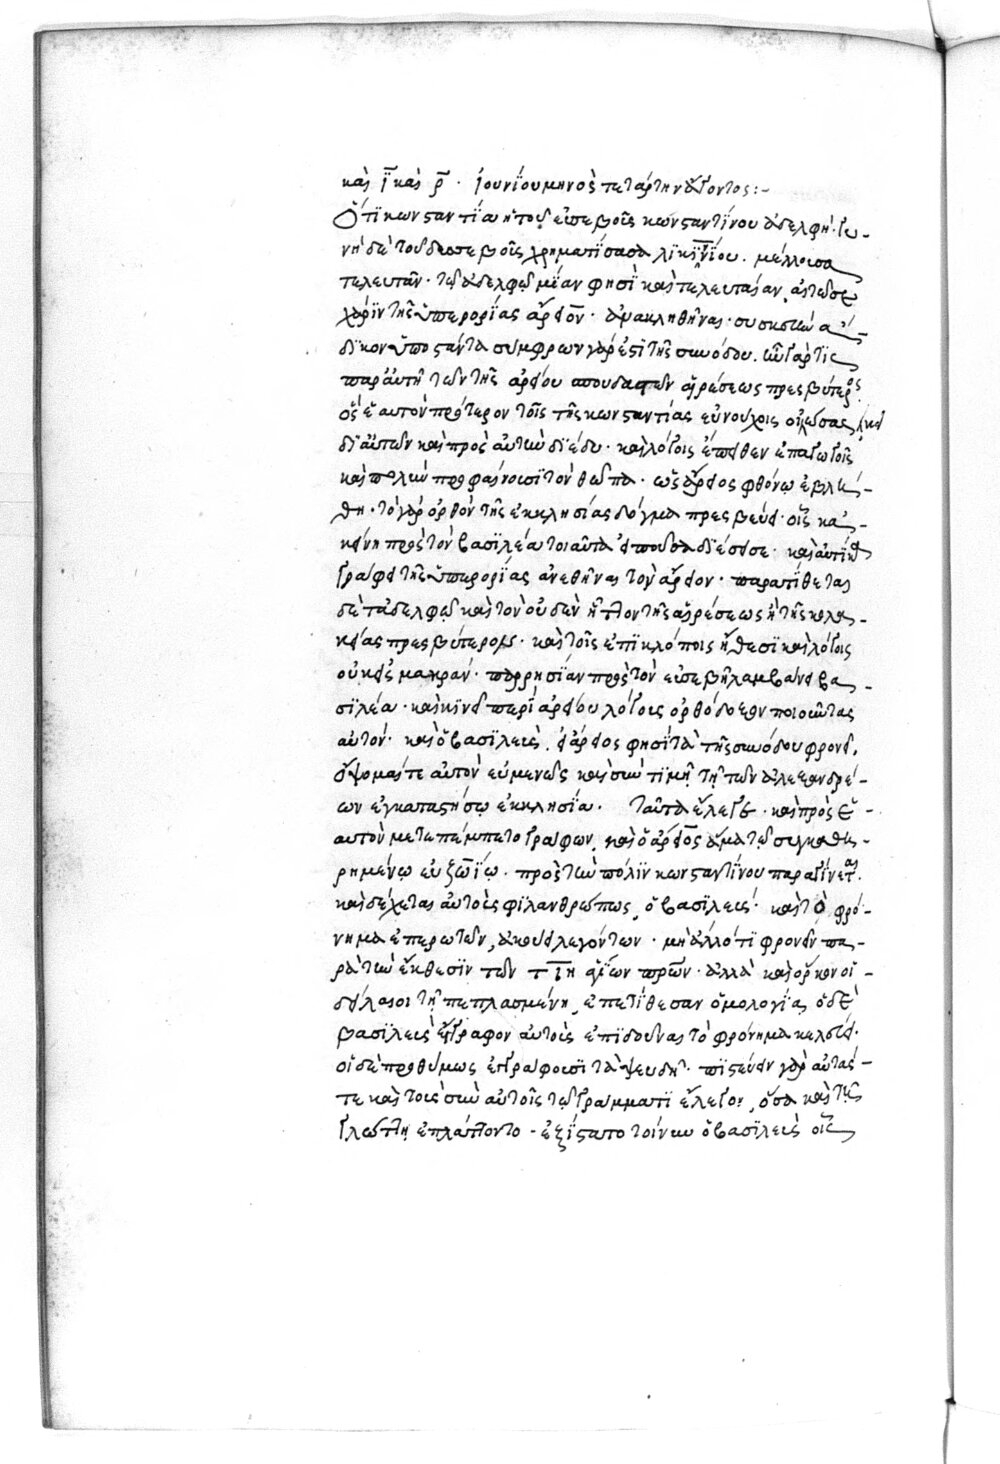 καὶ ῑ καὶ ρ̄ · ἰουνίου μηνὸς τετάρτην ἄγοντος :-
Ὅτι κωνσταντία ἡ τοῦ εὐσεβοῦς κωνσταντίνου ἀδελφὴ · γυ-
νὴ δὲ τοῦ δυσσεβοῦς χρηματίσασα λικινίου · μέλλουσα
τελευτᾶν · τῷ ἀδελφῷ μίαν φησὶ καὶ τελευταίαν αἰτῶ σε
χάριν τῆς ὑπερορίας ἄρειον · ἀνακληθῆναι · συσκευὴν ἄ-
δικον ὑποστάντα συμφρων γὰρ ἐπὶ τῆς συνόδου · ἦν γάρ τις
παρ' αὐτῇ τῶν τῆς ἀρείου σπουδαστῶν αἱρέσεως πρεσβύτερος ·
ὃς ἑαυτὸν πρότερον τοῖς τῆς κωνσταντίας εὐνούχοις οἰκειώσας καὶ
δι' αὐτῶν καὶ πρὸς αὐτὴν διέδυ · καὶ λόγοις ἔπειθεν ἐπαγωγοῖς
καὶ πολλὴν προφαίνουσι τὸν θωπα · ὡς ἄρειος φθόνῳ ἐβλή-
θη · τὸ γὰρ ὀρθὸν τῆς ἐκκλησίας δόγμα πρεσβεύει · οἷς κἀ-
κείνη πρὸς τὸν βασιλέα τοιαῦτα εἰποῦσα διέσεισε · καὶ αὐτίκα
γράφει τῆς ὑπερορίας ἀνεθῆναι τὸν ἄρειον · παρατίθεται
δὲ τἀδελφῷ καὶ τὸν οὐδὲν ἧττον τῆς αἱρέσεως ἢ τῆς κολα-
κείας πρεσβύτερον · καὶ τοῖς ἐπικλόποις ἤθεσι καὶ λόγοις
οὐκ εἰς μακρὰν · παρρησίαν πρὸς τὸν εὐσεβῆ λαμβάνει βα-
σιλέα · καὶ κινεῖ περὶ ἀρείου λόγους ὀρθόδοξον ποιοῦντας
αὐτόν · καὶ ὁ βασιλεὺς, εἰ ἄρειος φησὶ τὰ τῆς συνόδου φρονεῖ,
ὄψομαί τε αὐτὸν εὐμενῶς καὶ σὺν τιμῇ τῇ τῶν ἀλεξανδρέ-
ων ἐγκαταστήσω ἐκκλησίᾳ · Ταῦτα ἔλεγε · καὶ πρὸς ἑ-
αυτὸν μετεπέμπετο γράφων, καὶ ὁ ἄρειος ἅμα τῷ συγκαθῃ-
ρημένῳ εὐζωΐῳ · πρὸς τὴν πόλιν κωνσταντίνου παραγίνεται ·
καὶ δέχεται αὐτοὺς φιλανθρώπως, ὁ βασιλεὺς · καὶ τὸ φρό-
νημα ἐπερωτῶν, ἀκούει λεγόντων · μὴ ἄλλό τι φρονεῖν πα-
ρὰ τὴν ἔκθεσιν τῶν τῑῑη ἁγίων πρων · ἀλλὰ καὶ ὅρκον οἱ
δείλαιοι τῇ πεπλασμένῃ, ἐπετίθεσαν ὁμολογίᾳ ὁ δὲ
βασιλεὺς ἔγγραφον αὐτοὺς ἐπιδοῦναι τὸ φρόνημα κελεύει ·
οἱ δὲ προθύμως ἐγγράφουσι τὰ ψευδῆ · πιστεύειν γὰρ αὐτοὺς
τε καὶ τοὺς σὺν αὐτοῖς τῷ γράμματι ἔλεγον, ὅσα καὶ τῇ
γλώττῃ ἐπλάττοντο - ἐξίστατο τοίνυν ὁ βασιλεὺς οἷς